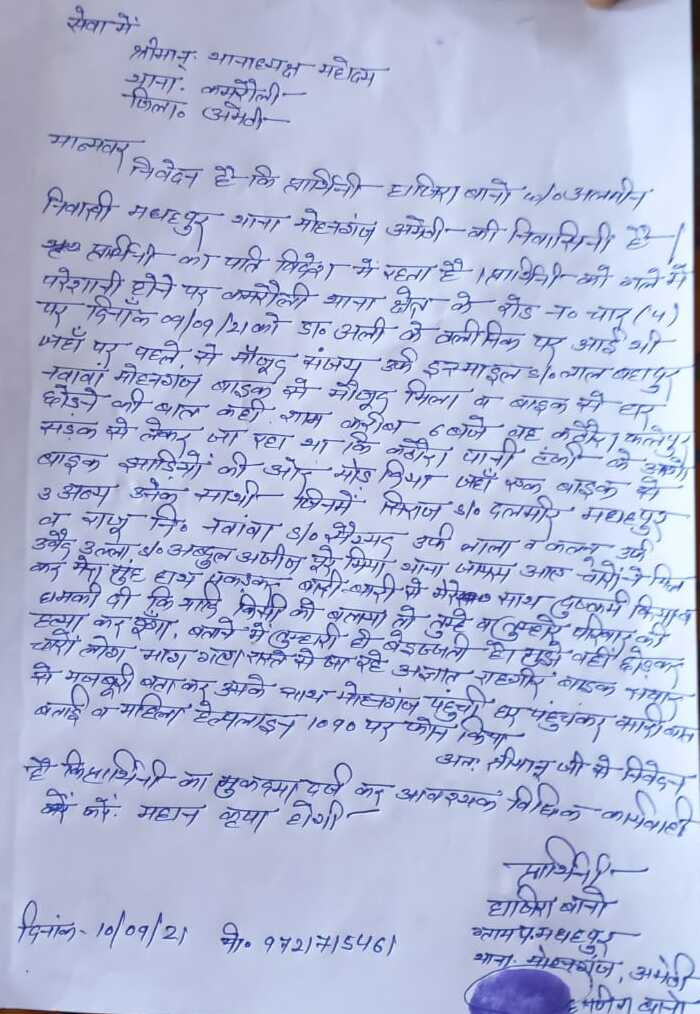 सेवा में
श्रीमान् थानाध्यक्ष महोदय
थाना. कमरौली
जिला० अमेठी
मान्यवर
निवेदन है कि प्रार्थिनी हाजिरा बानो w/o अलमीन
निवासी मधहपुर थाना मोहनगंज अमेठी की निवासिनी है।
प्रार्थिनी का पति विदेश में रहता है। प्रार्थिनी को गले में
परेशानी होने पर कमरौली थाना क्षेत्र के रोड न० चार (4)
पर दिनाँक 09/09/21 को डा० अली के क्लीनिक पर आई थी
जहाँ पर पहले से मौजूद संजय उर्फ इस्माइल s/o लाल बहादुर
नवावां मोहनगंज बाइक से मौजूद मिला व बाइक से घर
छोड़ने की बात कही शाम करीब 6 बजे वह कठौरा फत्तेपुर
सड़क से लेकर जा रहा था कि कठौरा पानी टंकी के आगे
बाइक झाड़ियों की ओर मोड़ लिया जहाँ एक बाइक से
3 अन्य उनके साथी जिनमें सिराज s/o दलमीर मधहपुर
व राजू नि० नवांवा s/o सैय्यद उर्फ लाला व कल्लू उर्फ
उबैद उल्ला s/o अब्दुल अजीज पूरे मियां थाना जायस आए चारों ने मिल
कर मेरा मुंह हाथ पकड़कर बारी-बारी से मेरे साथ दुष्कर्म किया व
धमकी दी कि यदि किसी को बताया तो तुम्हे व तुम्हारे परिवार की
हत्या कर देंगा, बताने में तुम्हारी ही बेइज्जती है। मुझे वहीं छोड़कर
चारों लोग भाग गए। रास्ते से जा रहे अज्ञात राहगीर बाइक सवार
से मजबूरी बताकर उसके साथ मोहनगंज पहुंची घर पहुंचकर सारी बात
बताई व महिला हेल्पलाइन 1090 पर फोन किया
अतः श्रीमान् जी से निवेदन
है कि प्रार्थिनी का मुकदमा दर्ज कर आवश्यक विधिक कार्यवाही
करें. महान कृपा होगी
प्रार्थिनी
हाजिरा बानो
ग्राम प. मधहपुर
थाना. मोहनगंज, अमेठी
दिनांक- 10/09/21 मो० 9721715461
बानो